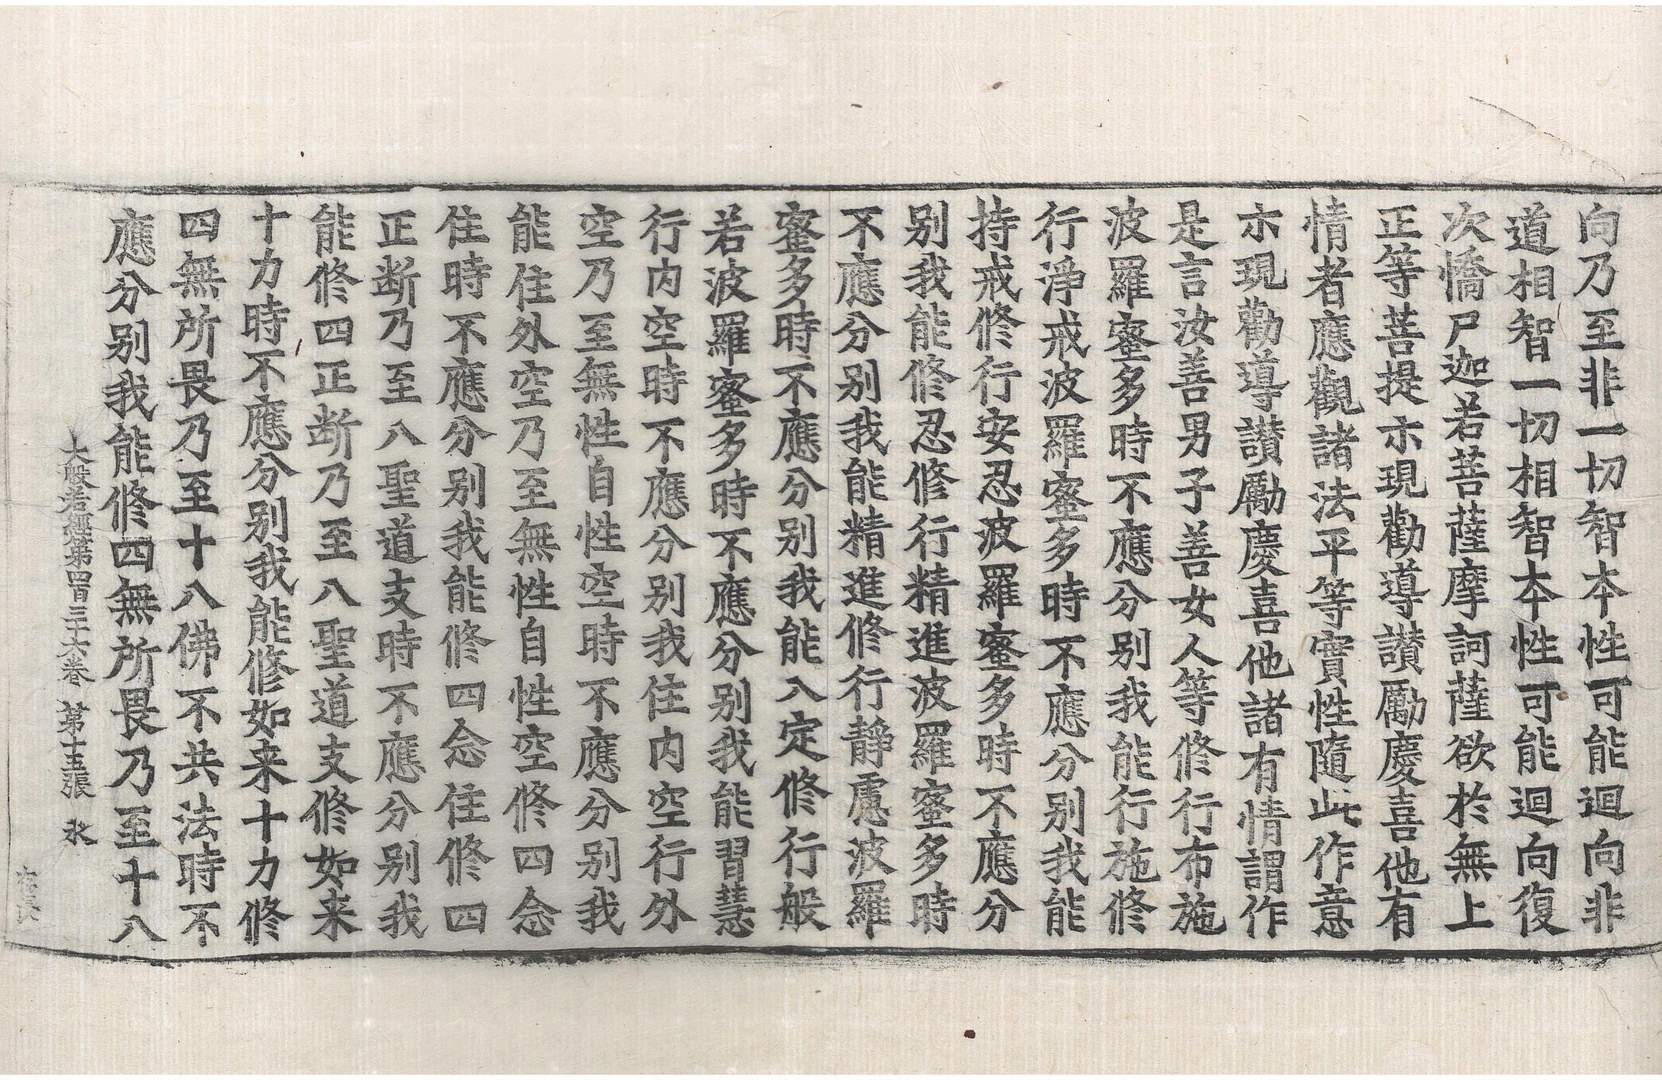 向乃至非一切智本性可能迴向非
道相智一切相智本性可能迴向復
次憍尸迦若菩薩摩訶薩欲於無上
正等菩提示現勸導讃勵慶喜他有
情者應觀諸法平等實性隨此作意
示現勸導讃勵慶喜他諸有情謂作
是言汝善男子善女人等修行布施
波羅蜜多時不應分别我能行施修
行淨戒波羅蜜多時不應分别我能
持戒修行安忍波羅蜜多時不應分
别我能修忍修行精進波羅蜜多時
不應分别我能精進修行靜慮波羅
蜜多時不應分别我能入定修行般
若波羅蜜多時不應分别我能習慧
行内空時不應分别我住内空行外
空乃至無性自性空時不應分别我
能住外空乃至無性自性空修四念
住時不應分别我能修四念住修四
正断乃至八聖道支時不應分别我
能修四正断乃至八聖道支修如来
十力時不應分别我能修如来十力修
四無所畏乃至十八佛不共法時不
應分别我能修四無所畏乃至十八
大般若經第四百三十六卷 第十五張